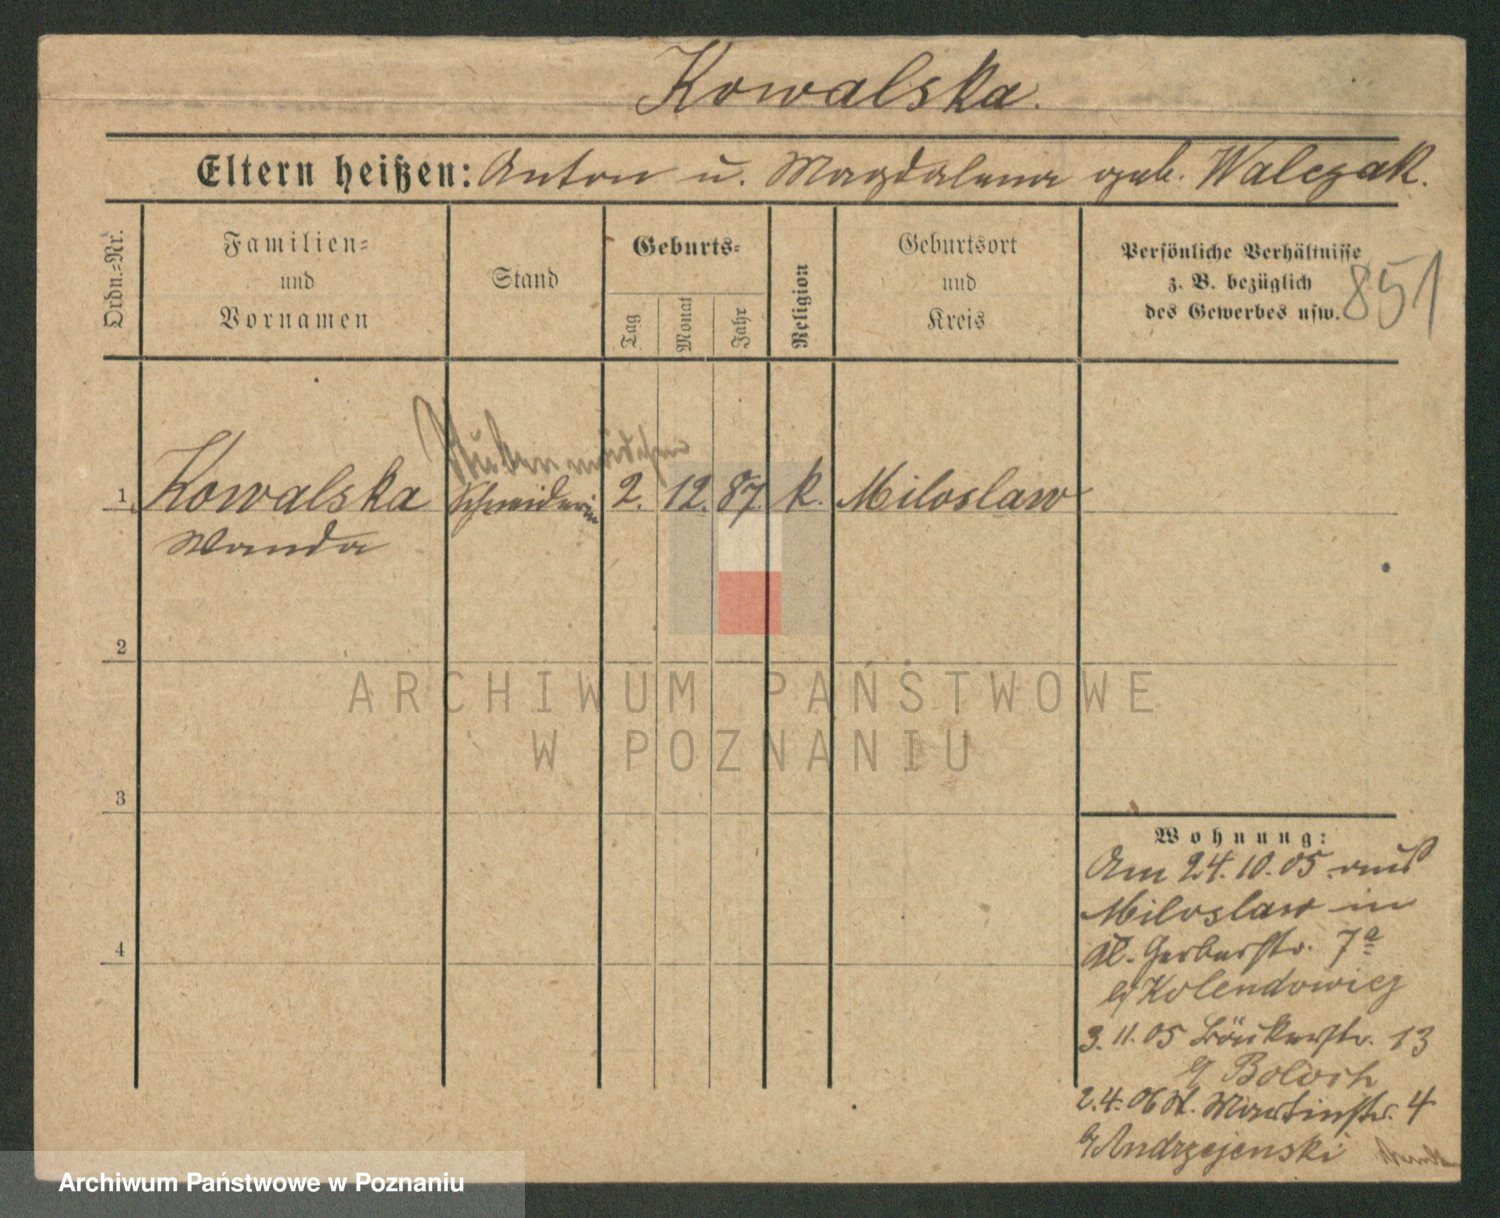 Kowalska.
Eltern heißen: Anton u. Magdalena geb. Walczak.
Ordn.-Nr.
Familien-
und
Vornamen
Stand
Geburts-
Tag
Monat
Jahr
Religion
Geburtsort
und
Kreis
Persönliche Verhältnisse
z. B. bezüglich
des Gewerbes usw.
851
Stubenmädchen
1 Kowalska Schneiderin 2. 12. 87. k. Miloslaw
Wanda
2
3
4
Wohnung:
Am 24.10.05 aus
Miloslaw in
Kl. Gerberstr. 7a
b/ Kolendowicz
3.11.05 Bäckerstr. 13
b/
2.4.06 St. Martinstr. 4
b/ Andrzejewski
ARCHIWUM PAŃSTWOWE
W POZNANIU
Archiwum Państwowe w Poznaniu